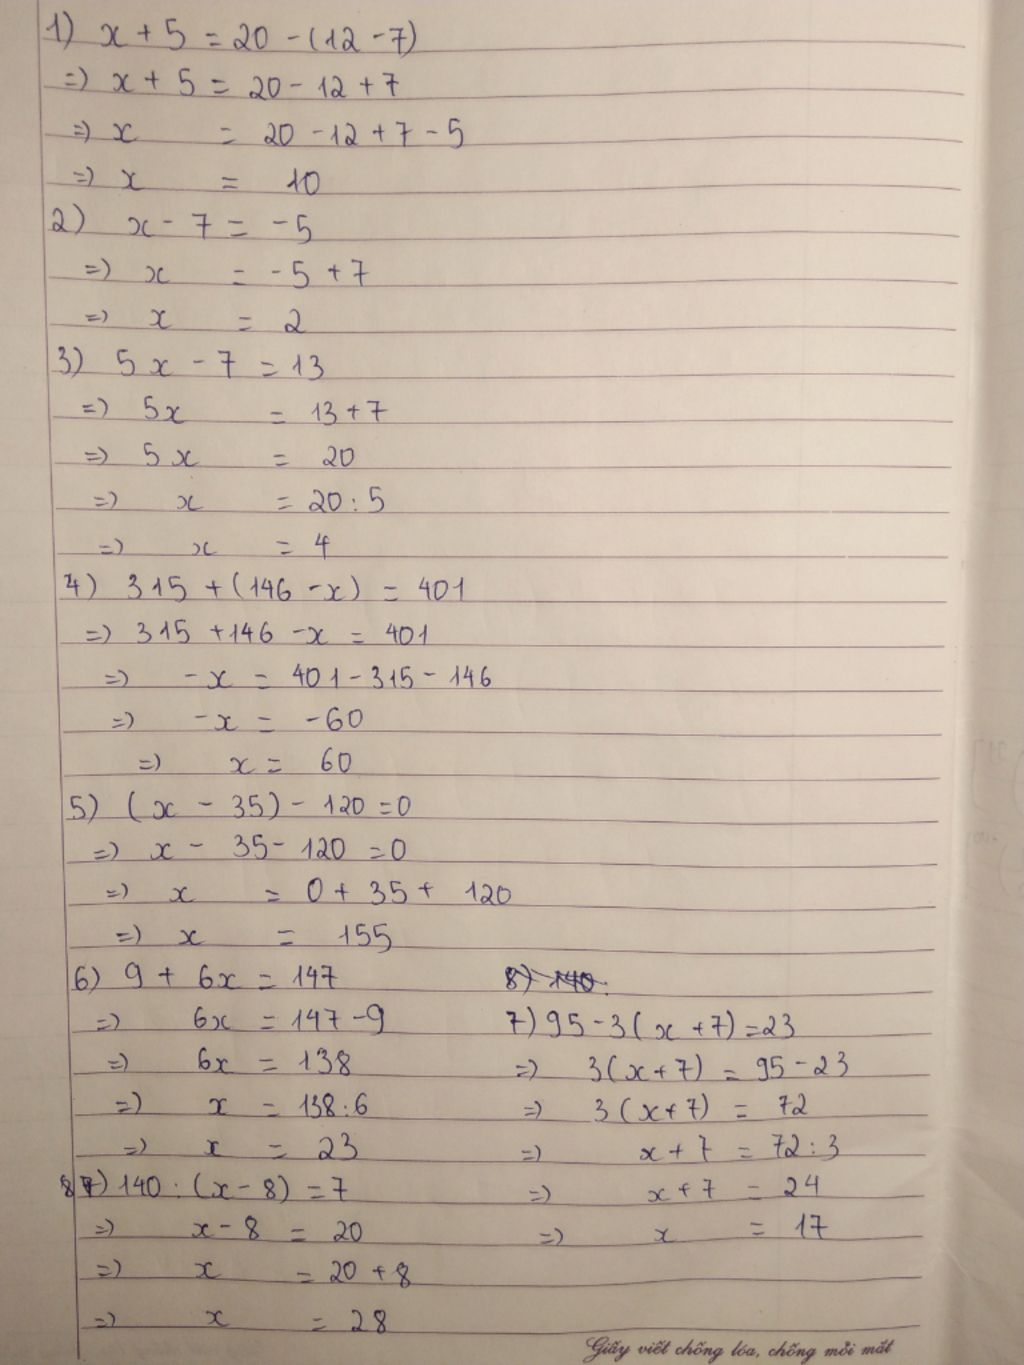 1) x + 5 = 20 - (12 - 7)
=) x + 5 = 20 - 12 + 7
=) x = 20 - 12 + 7 - 5
=) x = 10
2) x - 7 = -5
=) x = -5 + 7
=) x = 2
3) 5x - 7 = 13
=) 5x = 13 + 7
=) 5x = 20
=) x = 20 : 5
=) x = 4
4) 315 + (146 - x) = 401
=) 315 + 146 - x = 401
=) -x = 401 - 315 - 146
=) -x = -60
=) x = 60
5) (x - 35) - 120 = 0
=) x - 35 - 120 = 0
=) x = 0 + 35 + 120
=) x = 155
6) 9 + 6x = 147
=) 6x = 147 - 9
=) 6x = 138
=) x = 138 : 6
=) x = 23
8) 140 : (x - 8) = 7
=) x - 8 = 20
=) x = 20 + 8
=) x = 28
8) 140
7) 95 - 3(x + 7) = 23
=) 3(x + 7) = 95 - 23
=) 3(x + 7) = 72
=) x + 7 = 72 : 3
=) x + 7 = 24
=) x = 17
Giấy viết chống lóa, chống mỏi mắt